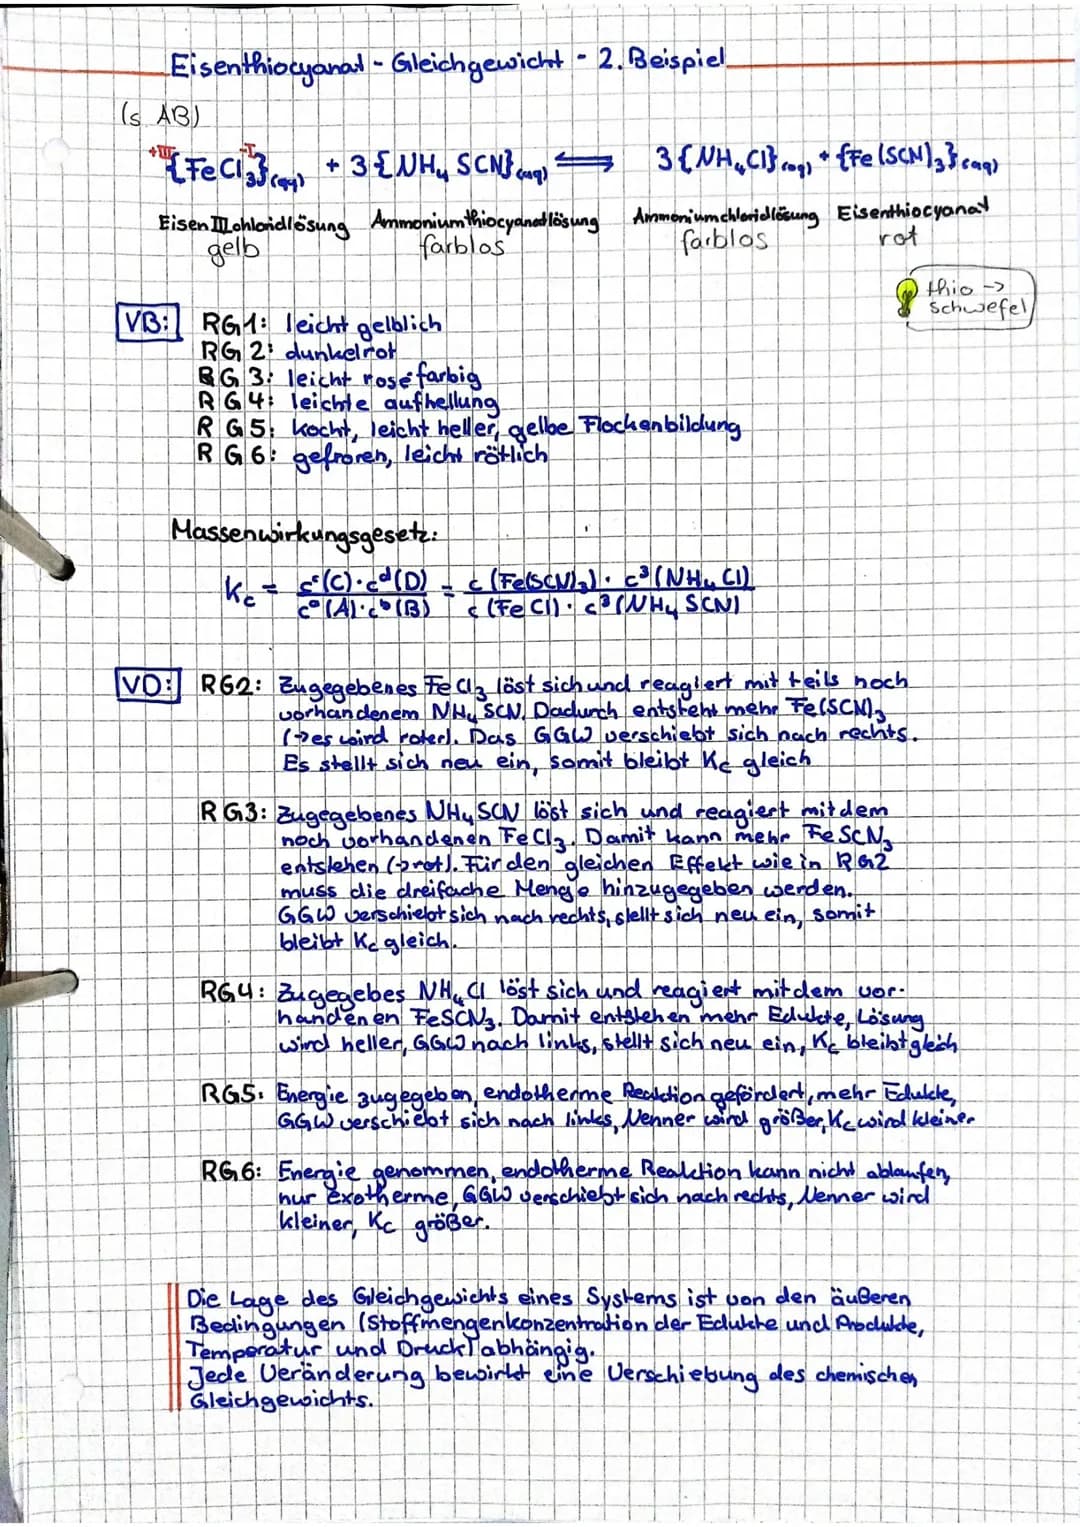 Eisenthiocyanat - Gleichgewicht - 2. Beispiel
(s AB)
+III -I
{FeCl₃}(aq) + 3 {NH₄ SCN}(aq) ⇌ 3 {NH₄Cl}(aq) + {Fe(SCN)₃}(aq)
Eisen III chloridlösung Ammoniumthiocyanatlösung Ammoniumchloridlösung Eisenthiocyanat
gelb farblos farblos rot
thio ->
schwefel
VB: RG1: leicht gelblich
RG 2: dunkelrot
RG 3: leicht roséfarbig
RG4: leichte aufhellung
RG5: kocht, leicht heller, gelbe Flockenbildung
RG6: gefroren, leicht rötlich
Massenwirkungsgesetz:
Kc = cᶜ(C)·cᵈ(D) / cᵃ(A)·cᵇ(B) = c (Fe(SCN)₃) · c³(NH₄ Cl) / c (FeCl) · c³(NH₄ SCN)
VD: RG2: Zugegebenes FeCl₃ löst sich und reagiert mit teils noch
vorhandenem NH₄ SCN. Dadurch entsteht mehr Fe(SCN)₃
(->es wird roter). Das GGW verschiebt sich nach rechts.
Es stellt sich neu ein, somit bleibt Kc gleich
RG3: Zugegebenes NH₄SCN löst sich und reagiert mit dem
noch vorhandenen FeCl₃. Damit kann mehr FeSCN₃
entstehen (->rot). Für den gleichen Effekt wie in RG2
muss die dreifache Menge hinzugegeben werden.
GGW verschiebt sich nach rechts, stellt sich neu ein, somit
bleibt Kc gleich.
RG4: Zugegebes NH₄Cl löst sich und reagiert mit dem vor-
handenen FeSCN₃. Damit entstehen mehr Edukte, Lösung
wird heller, GGW nach links, stellt sich neu ein, Kc bleibt gleich
RG5: Energie zugegeben, endotherme Reaktion gefördert, mehr Edukte,
GGW verschiebt sich nach links, Nenner wird größer, Kc wird kleiner
RG6: Energie genommen, endotherme Reaktion kann nicht ablaufen,
nur exotherme, GGW verschiebt sich nach rechts, Nenner wird
kleiner, Kc größer.
Die Lage des Gleichgewichts eines Systems ist von den äußeren
Bedingungen (Stoffmengenkonzentration der Edukte und Produkte,
Temperatur und Druck) abhängig.
Jede Veränderung bewirkt eine Verschiebung des chemischen
Gleichgewichts.